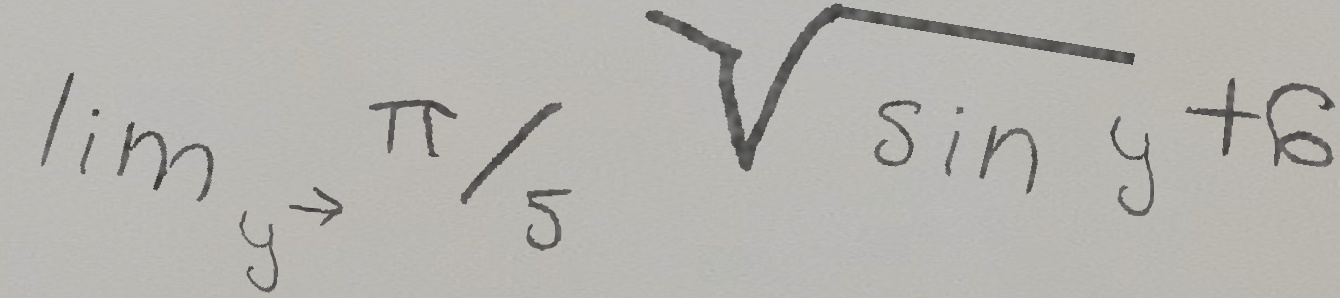 lim y→ π/5 √sin y +6